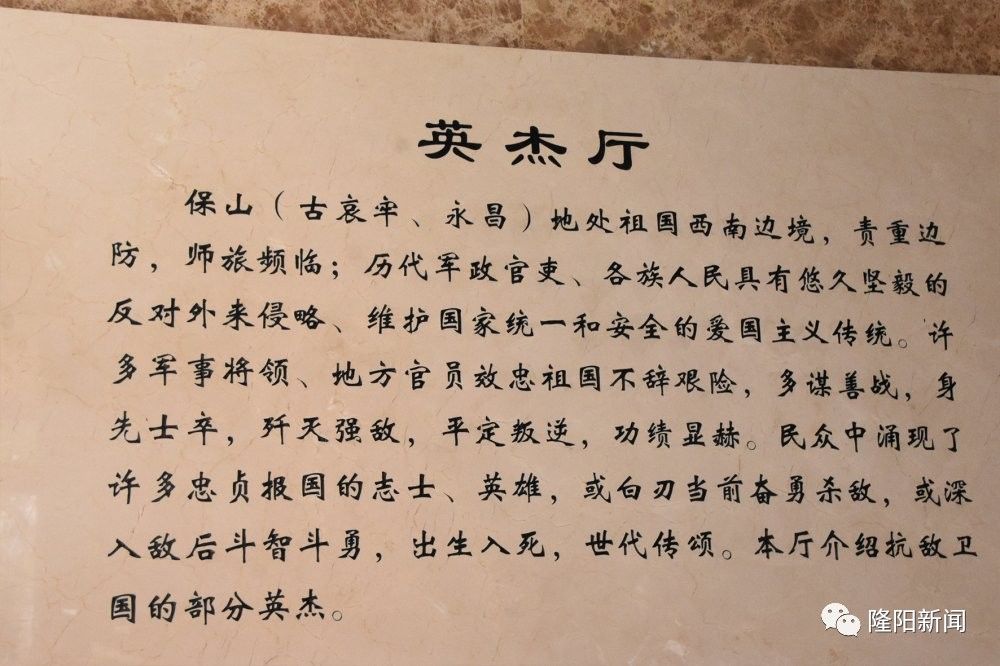 英杰厅
保山（古哀牢、永昌）地处祖国西南边境，责重边
防，师旅频临；历代军政官吏、各族人民具有悠久坚毅的
反对外来侵略、维护国家统一和安全的爱国主义传统。许
多军事将领、地方官员效忠祖国不辞艰险，多谋善战，身
先士卒，歼灭强敌，平定叛逆，功绩显赫。民众中涌现了
许多忠贞报国的志士、英雄，或白刃当前奋勇杀敌，或深
入敌后斗智斗勇，出生入死，世代传颂。本厅介绍抗敌卫
国的部分英杰。
隆阳新闻